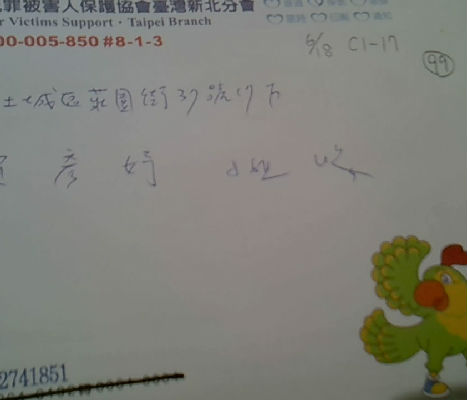 罪被害人保護協會臺灣新北分會
r Victims Support · Taipei Branch
00-005-850 #8-1-3
5/18 C1-17
99
土城區菜園街37號17F
彥婷 小姐 收
2741851